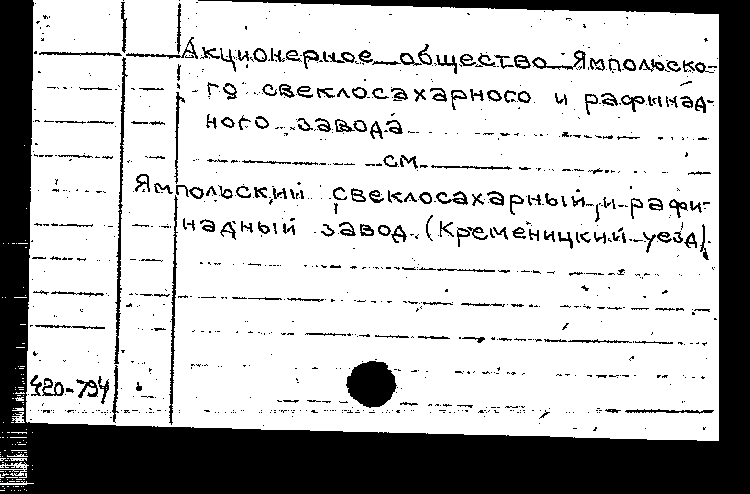 Акционерное общество Ямпольско-
го свеклосахарного и рафинад-
ного завода
см
Ямпольский свеклосахарный и рафи-
надный завод. (Кременицкий уезд).
420-794